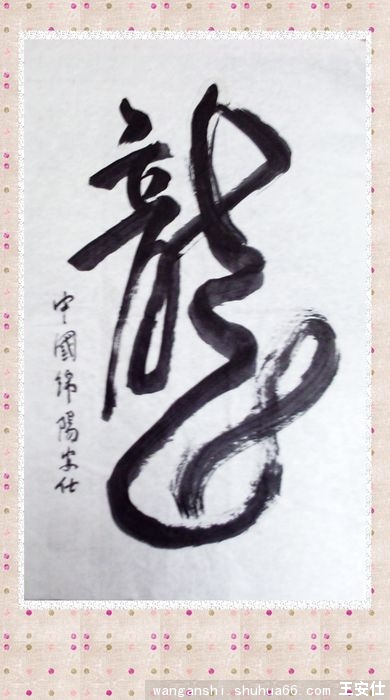 龍
中國綿陽安仕
wanganshi.shuhua66.com 王安仕